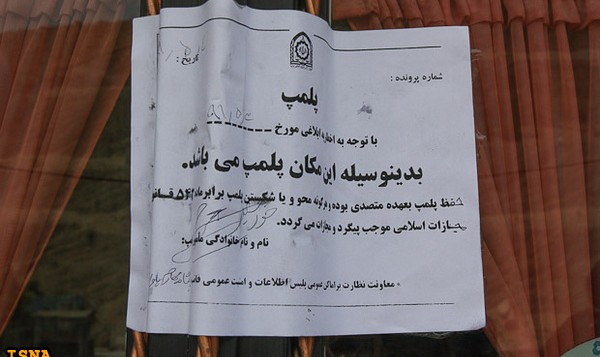 شماره پرونده :
تاریخ :
پلمپ
با توجه به اخطاریه ابلاغی مورخ
بدینوسیله این مکان پلمپ می باشد.
حفظ پلمپ بعهده متصدی بوده و هرگونه محو و یا شکستن پلمپ برابر ماده ۵۴۳ قانون
مجازات اسلامی موجب پیگرد و مجازات می گردد.
نام و نام خانوادگی
معاونت نظارت بر اماکن عمومی پلیس اطلاعات و امنیت عمومی
ISNA